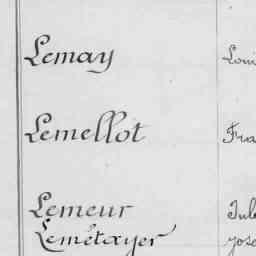 Lemay Loui
Lemellot Fra
Lemeur Jule
Lemétayer jose